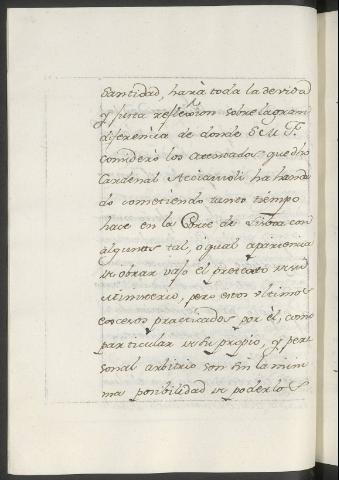 Santidad, hará toda la devida
y justa reflexion sobre la gran
diferencia de donde S. M. F.
consideró los atentados que dho
Cardenal Acciaiuoli ha handa
do cometiendo tanto tiempo
hace en la Corte de Lisboa con
alguna tal, ó qual apariencia
de obrar vajo el pretexto de su
Ministerio, pero estos vltimos
excesos practicados por él, como
particular de su propio, y per
sonal arbitrio son sin la mini
ma posibilidad de poderlos